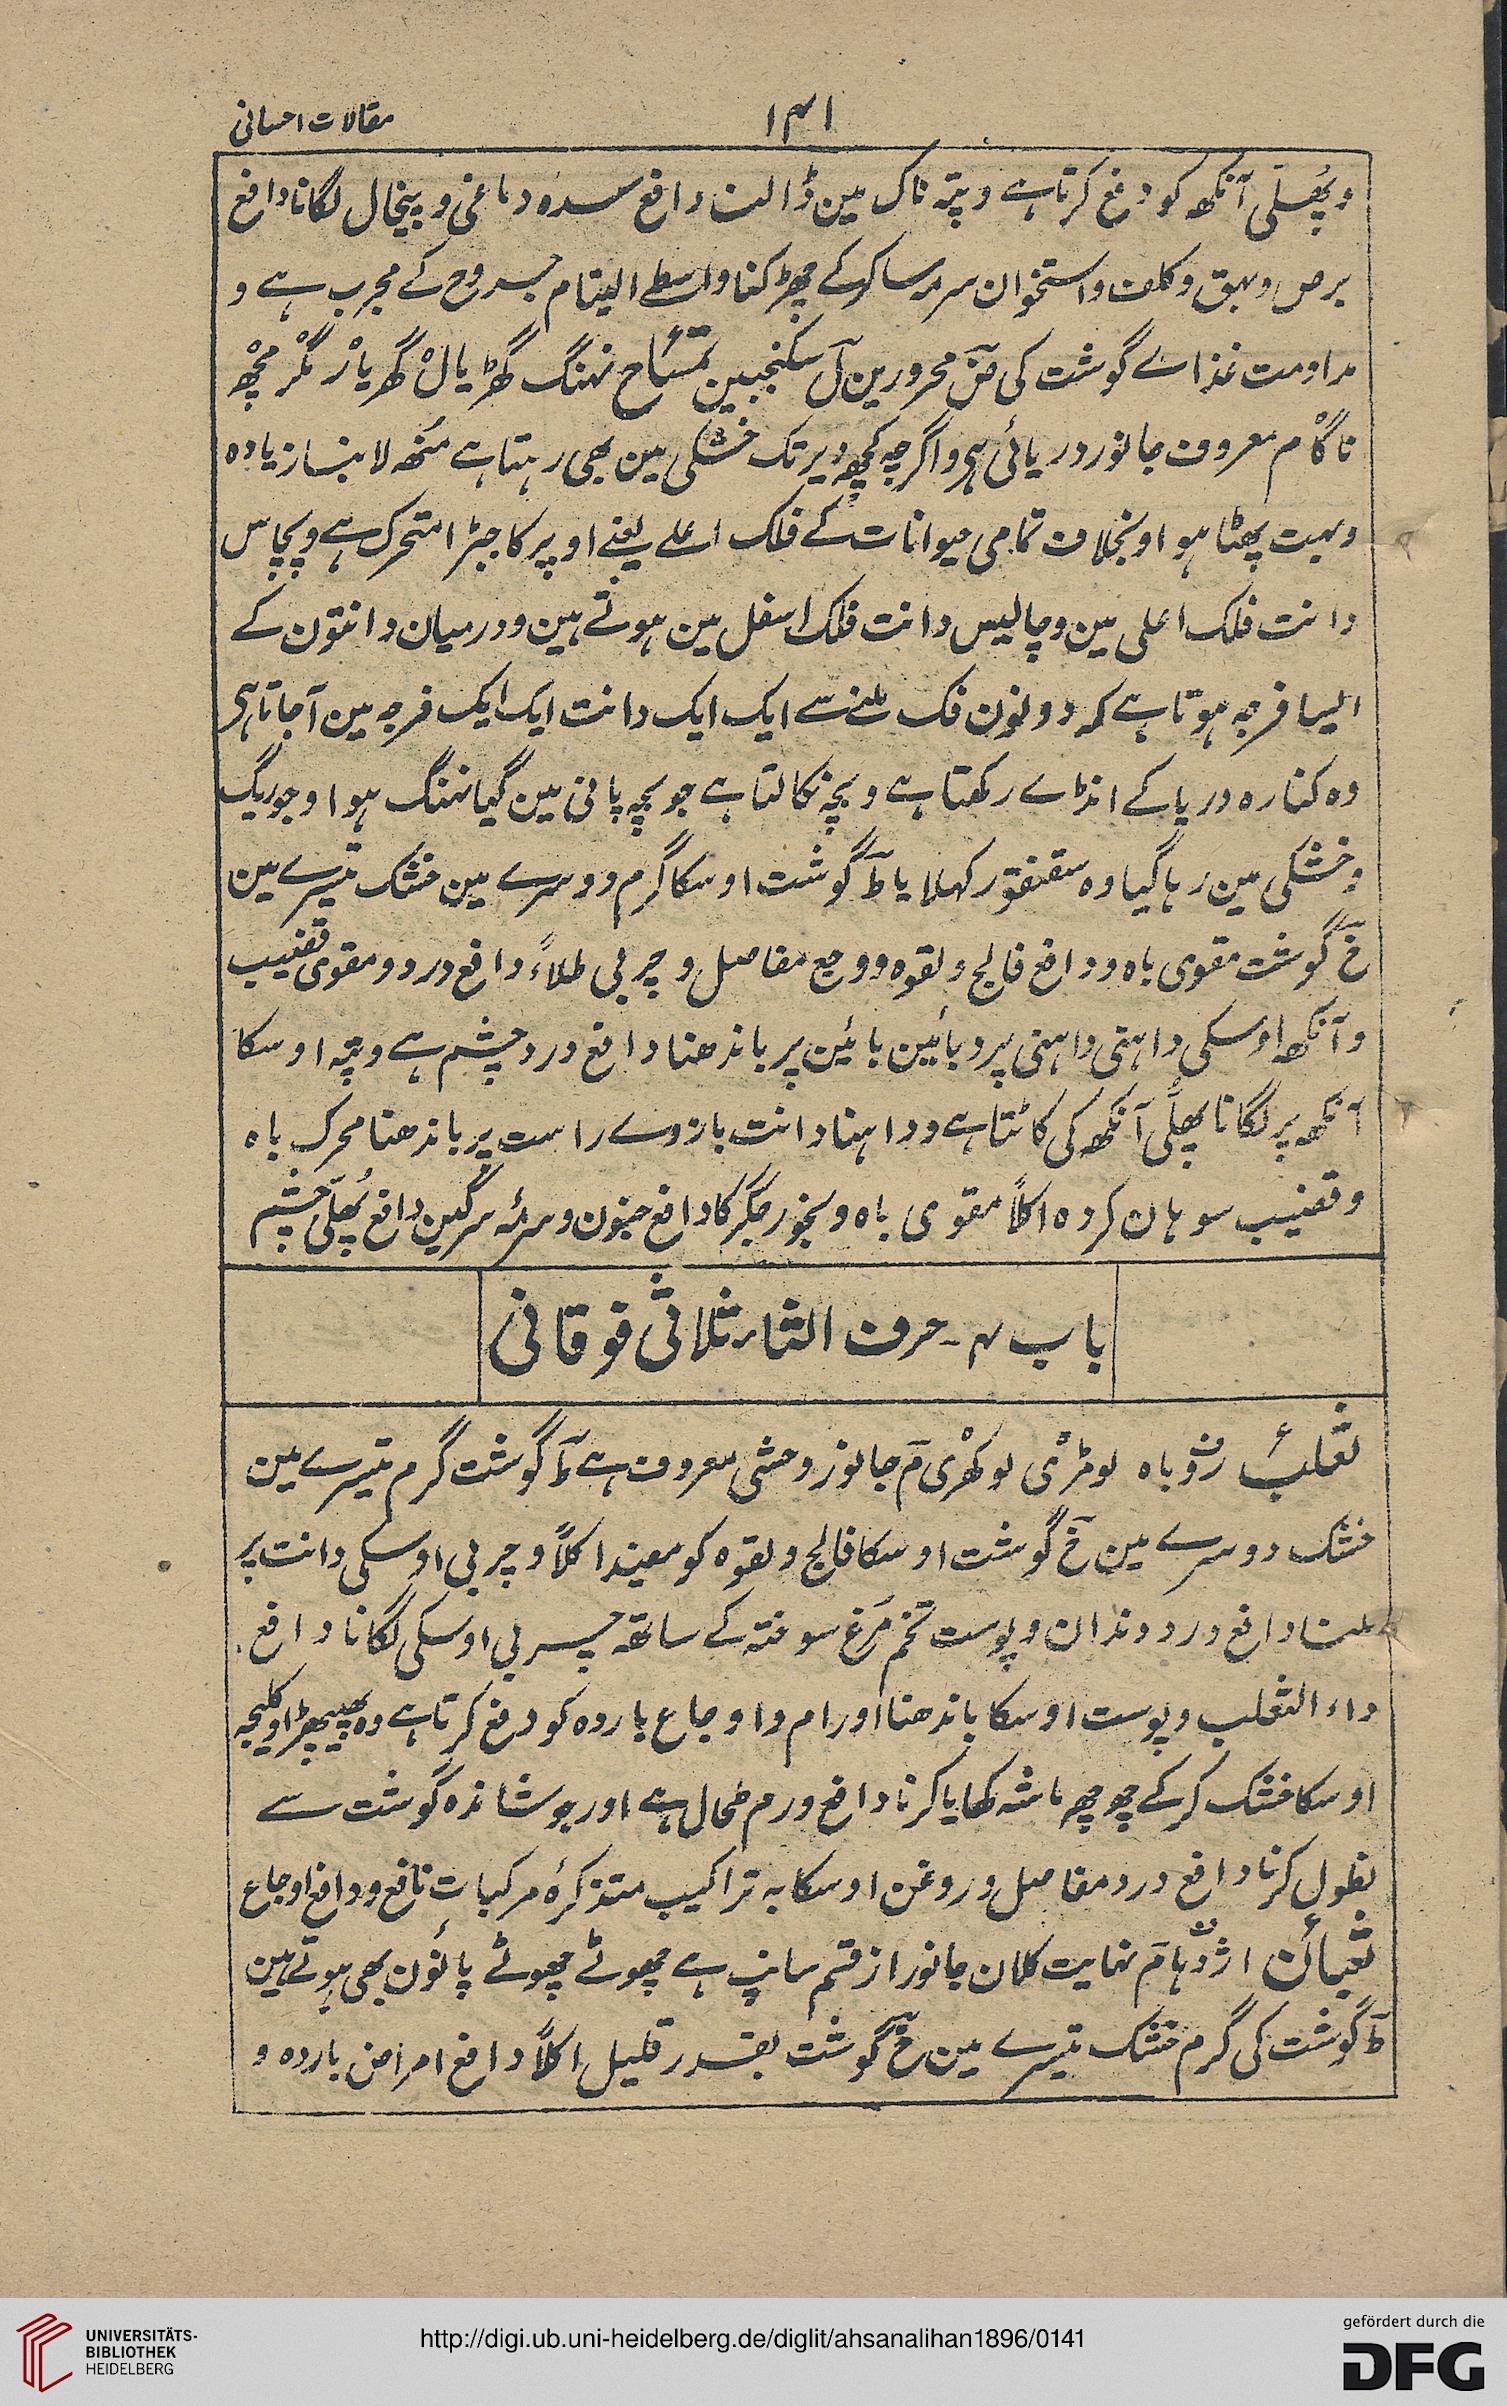 ۱۴۱
مقالات احسانی
و پُھلّی آنکھ کو دفع کرتا ہے و پتہ ناک مین ڈالنا دافع سدہ دماغی و پیخال لگانا دافع
برص و بہق و کلف و استخوان سر مہ ساکرکے چھڑکنا واسطے التیام جروح کے مجرب ہے و
مداومت غذاے گوشت کی مضؔ محرورین لؔ سکنجبین تمسَاح نہنگ گھڑیالْ گھریاْر مگْر مچْھ
ناگْا م معروف جانور دریائی ہی و اگرچہ کچھ دیر تک خشکی مین بھی رہتا ہے مُنھ لانبا زیادہ
و بہت پھٹا ہوا و بخلاف تمامی حیوانات کے فلک اعلے یعنے اوپر کا جبڑا متحرک ہے و پچاس
دانت فلک اعلی مین و چالیس دانت فلک اسفل مین ہوتے ہین و درمیان دانتون کے
ایسا فرجہ ہوتا ہے کہ دونون فک ملنے سے ایک ایک دانت ایک ایک فرجہ مین آجاتا ہی
وہ کنارہ دریا کے انڈاے رکھتا ہے و بچہ نکالتا ہے جو بچہ پانی مین گیا نہنگ ہوا و جو ریگ
و خشکی مین رہا گیا وہ سقنقور کہلایا طؔ گوشت اوسکا گرم دوسرے مین خشک تیسرے مین
خؔ گوشت مقوی باہ و دافع فالج و لقوہ و وجع مفاصل و چربی طلاءً دافع درد و مقوی قضیب
و آنکھ اوسکی داہنی داہنی پر و بائین بائین پر باندھنا دافع درد چشم ہے و پتہ اوسکا
آنکھ پر لگانا پھلّی آنکھ کی کاٹتا ہے و داہنا دانت بازوے راست پر باندھنا محرک باہ
و قضیب سوہان کردہ اکلاً مقوی باہ و بخور جگر کا دافع جنون و سرمہ سرگین دافع پُھلّی چشم
باب ۴۔ حرف الثاء ثلاثی فوقانی
ثعلب روباہ لومڑی لوکھْری مؔ جانور وحشی معروف ہے طؔ گوشت گرم تیسرے مین
خشک دوسرے مین خؔ گوشت اوسکا فالج و لقوہ کو مفید اکلاً و چربی اوسکی دانت پر
ملنا دافع درد دندان و پوست تخم مرغ سوختہ کے ساتھ چربی اوسکی لگانا دافع
داء الثعلب و پوست اوسکا باندھنا اورام و اوجاع باردہ کو دفع کرتا ہے وہ پھیپھڑا و کلیجہ
اوسکا خشک کرکے چھ چھ ماشہ کھایا کرنا دافع ورم طحال ہے اور جوشاندہ گوشت سے
نطول کرنا دافع درد مفاصل و روغن اوسکا بہ تراکیب متذکرۂ مرکبات نافع و دافع اوجاع
ثعبان اژدہا مؔ نہایت کلان جانور از قسم سانپ ہے چھوٹے چھوٹے پائون بھی ہوتے ہین
طؔ گوشت کی گرم خشک تیسرے مین خؔ گوشت بقدر قلیل اکلاً دافع امراض باردہ و
UNIVERSITÄTS-
BIBLIOTHEK
HEIDELBERG
http://digi.ub.uni-heidelberg.de/diglit/ahsanalihan1896/0141
gefördert durch die
DFG